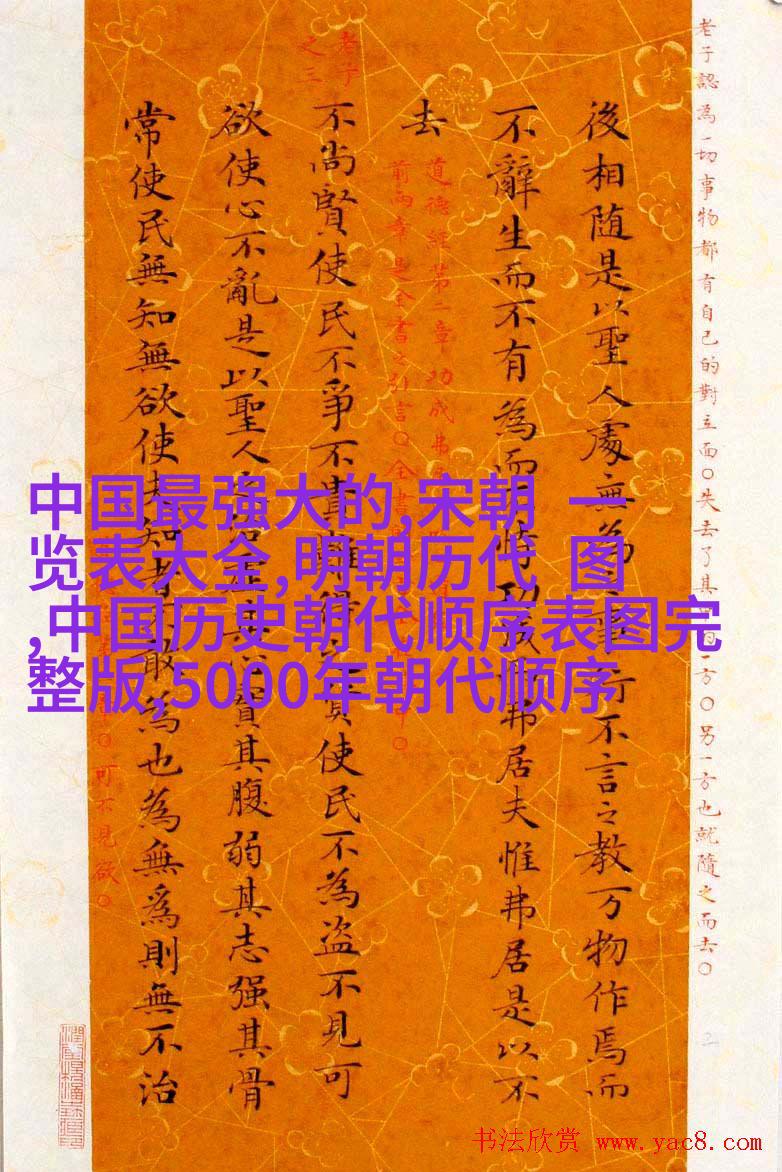 老子認為一切事物都有自己的對立面○失去了其一方○另一方也就隨之而去○
後相随是以聖人處無為之事行不言之教万物作焉而
不辭生而不有為而不恃功成而弗居夫惟弗居是以不
去
道德經第一章功成弗
前兩章是全書之引言○全書
老子
之三
不尚賢使民不爭不貴難得之貨使民不為盗不見可
欲使心不亂是以聖人之治虛其心實其腹弱其志强其骨
常使民無知無欲使夫知者不敢為也為無為則無不治
可不見欲○
中国最强大的,宋朝 一
览表大全,明朝历代 图
,中国历史朝代顺序表图完
整版,5000年朝代顺序
书法欣赏 www.yac8.com